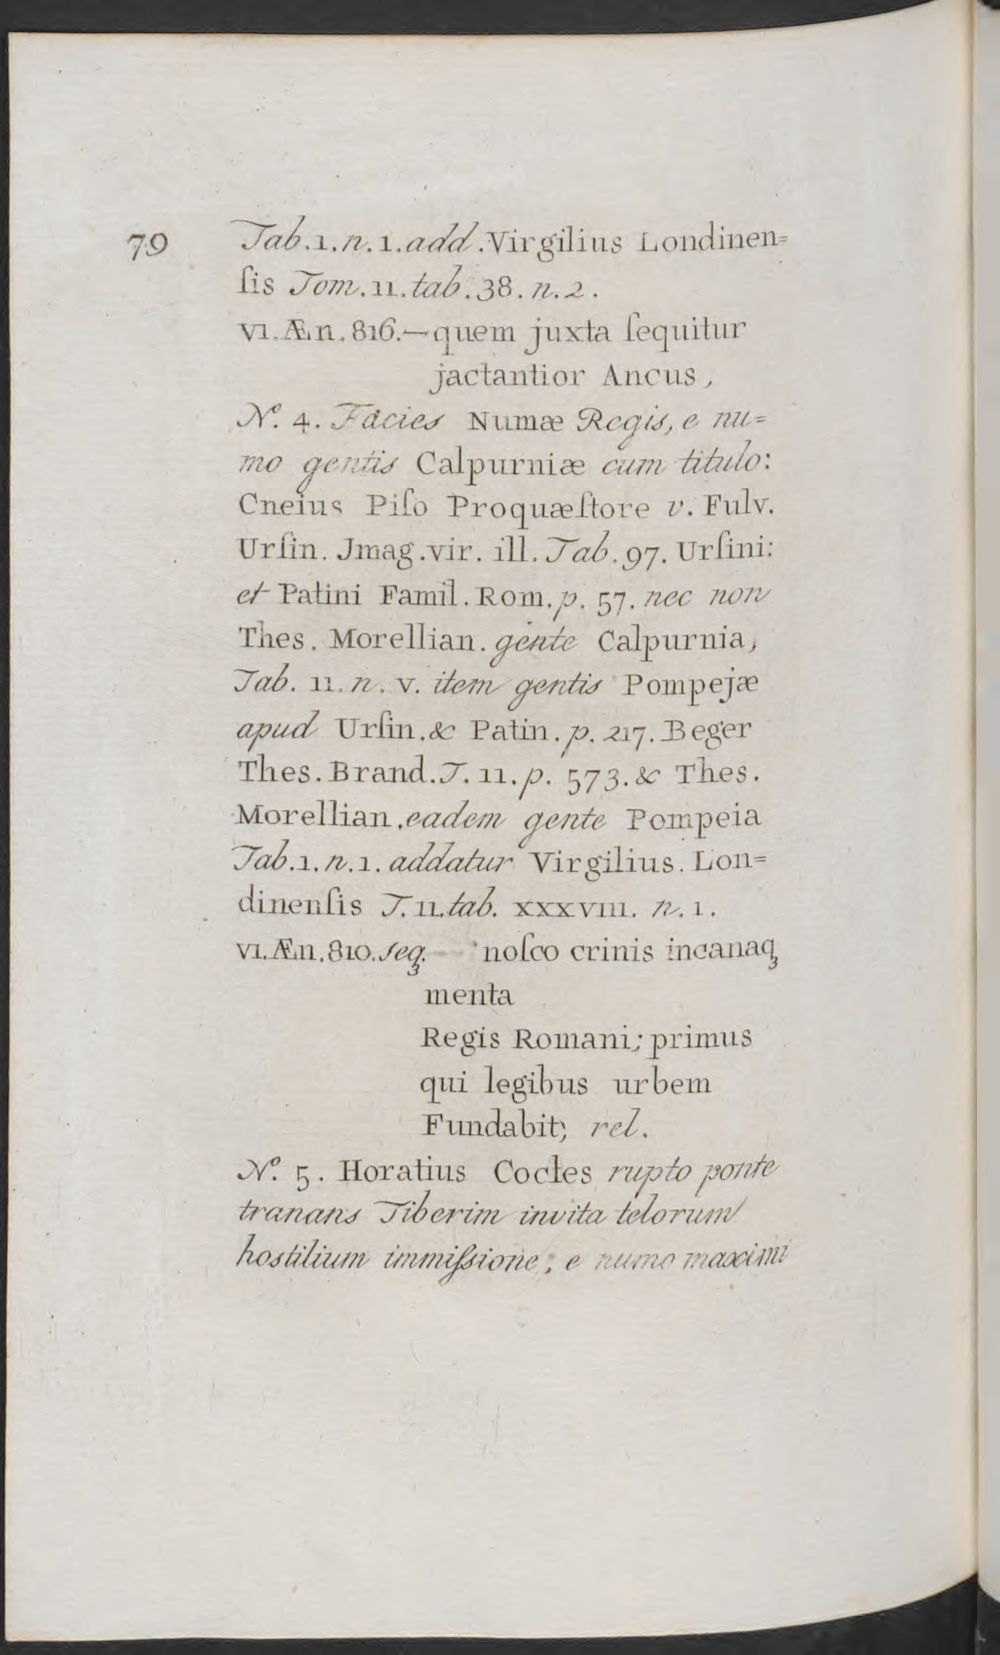 79 Tab.1.n.1.add.Virgilius Londinen=
ſis Tom.11.tab.38.n.2.
VI.Æn.816.—quem juxta ſequitur
jactantior Ancus,
N.º 4. Facies Numæ Regis, e nu=
mo gentis Calpurniæ cum titulo:
Cneius Piſo Proquæſtore v. Fulv.
Urſin. Jmag.vir. ill. Tab.97. Urſini:
et Patini Famil.Rom.p. 57. nec non
Thes. Morellian. gente Calpurnia,
Tab. 11.n.v. item gentis Pompejæ
apud Urſin.& Patin.p. 217. Beger
Thes.Brand.T.11.p. 573.& Thes.
Morellian.eadem gente Pompeia
Tab.1.n.1. addatur Virgilius. Lon=
dinenſis T.11.tab. XXXVIII. n.1.
VI.Æn.810.seqꝫ.— noſco crinis incanaqꝫ
menta
Regis Romani; primus
qui legibus urbem
Fundabit; rel.
N.º 5. Horatius Cocles rupto ponte
tranans Tiberim invita telorum
hostilium immiſsione; e numo maximi